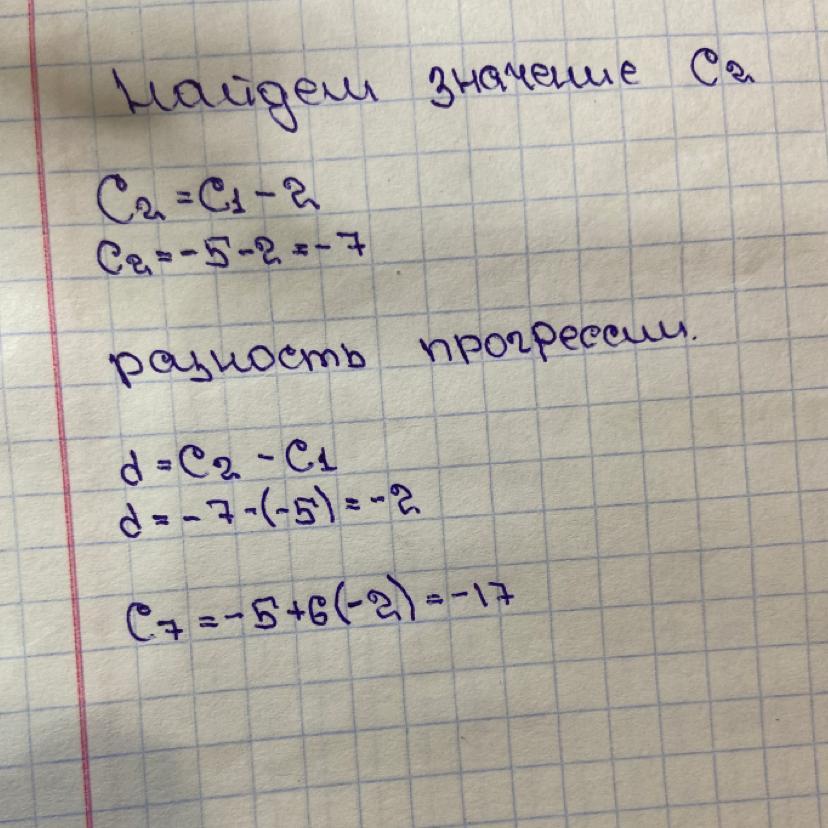 Найдем значение C₂
C₂ = C₁ - 2
C₂ = -5 - 2 = -7
разность прогрессии.
d = C₂ - C₁
d = -7 - (-5) = -2
C₇ = -5 + 6(-2) = -17